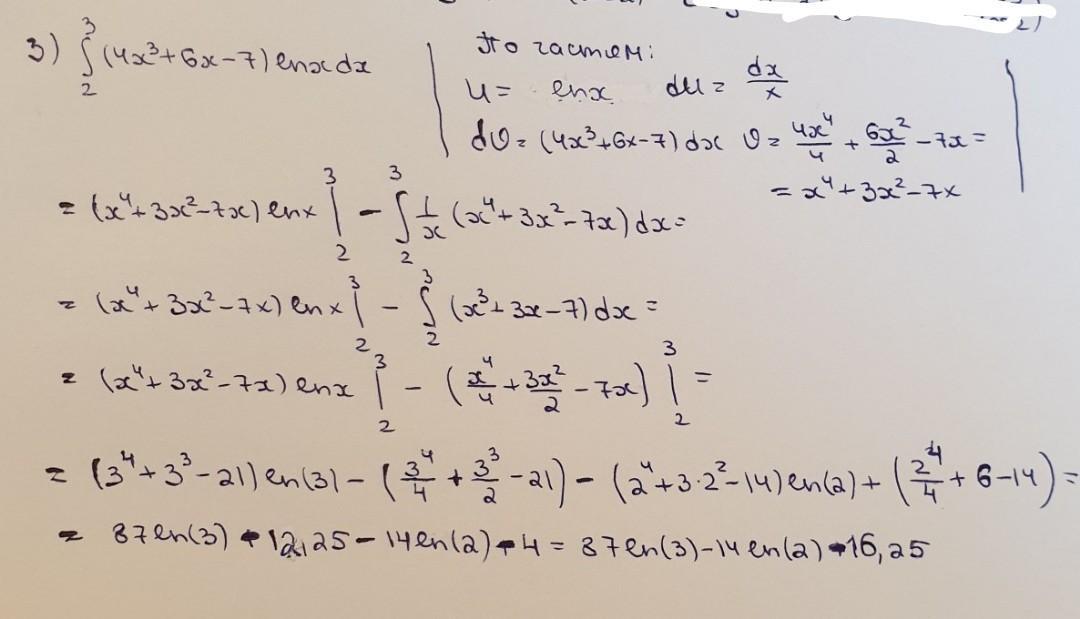 3) ∫₂³ (4x³+6x-7) lnx dx
По частям:
u = lnx du = dx/x
dv = (4x³+6x-7) dx v = 4x⁴/4 + 6x²/2 - 7x =
= x⁴+3x²-7x
= (x⁴+3x²-7x) lnx |₂³ - ∫₂³ 1/x (x⁴+3x²-7x) dx =
= (x⁴+3x²-7x) lnx |₂³ - ∫₂³ (x³+3x-7) dx =
= (x⁴+3x²-7x) lnx |₂³ - (x⁴/4 + 3x²/2 - 7x) |₂³ =
= (3⁴+3³-21) ln(3) - (3⁴/4 + 3³/2 - 21) - (2⁴+3·2²-14) ln(2) + (2⁴/4 + 6-14) =
= 87 ln(3) - 12,25 - 14 ln(2) - 4 = 87 ln(3) - 14 ln(2) - 16,25